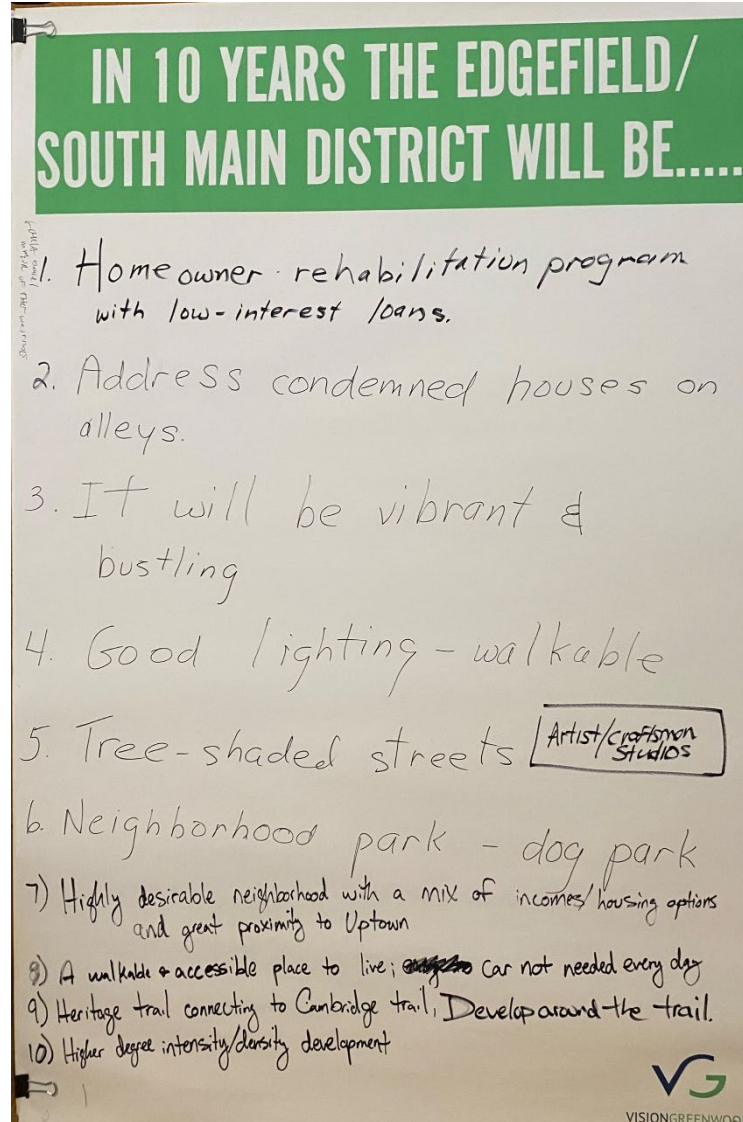 IN 10 YEARS THE EDGEFIELD/
SOUTH MAIN DISTRICT WILL BE.....
1. Homeowner rehabilitation program
with low-interest loans.
2. Address condemned houses on
alleys.
3. It will be vibrant &
bustling
4. Good lighting - walkable
5. Tree-shaded streets
Artist/craftsman
Studios
6. Neighborhood park - dog park
7) Highly desirable neighborhood with a mix of incomes/housing options
and great proximity to Uptown
8) A walkable + accessible place to live; car not needed every day
9) Heritage trail connecting to Cambridge trail, Develop around the trail.
10) Higher degree intensity/density development
VG
VISIONGREENWOO